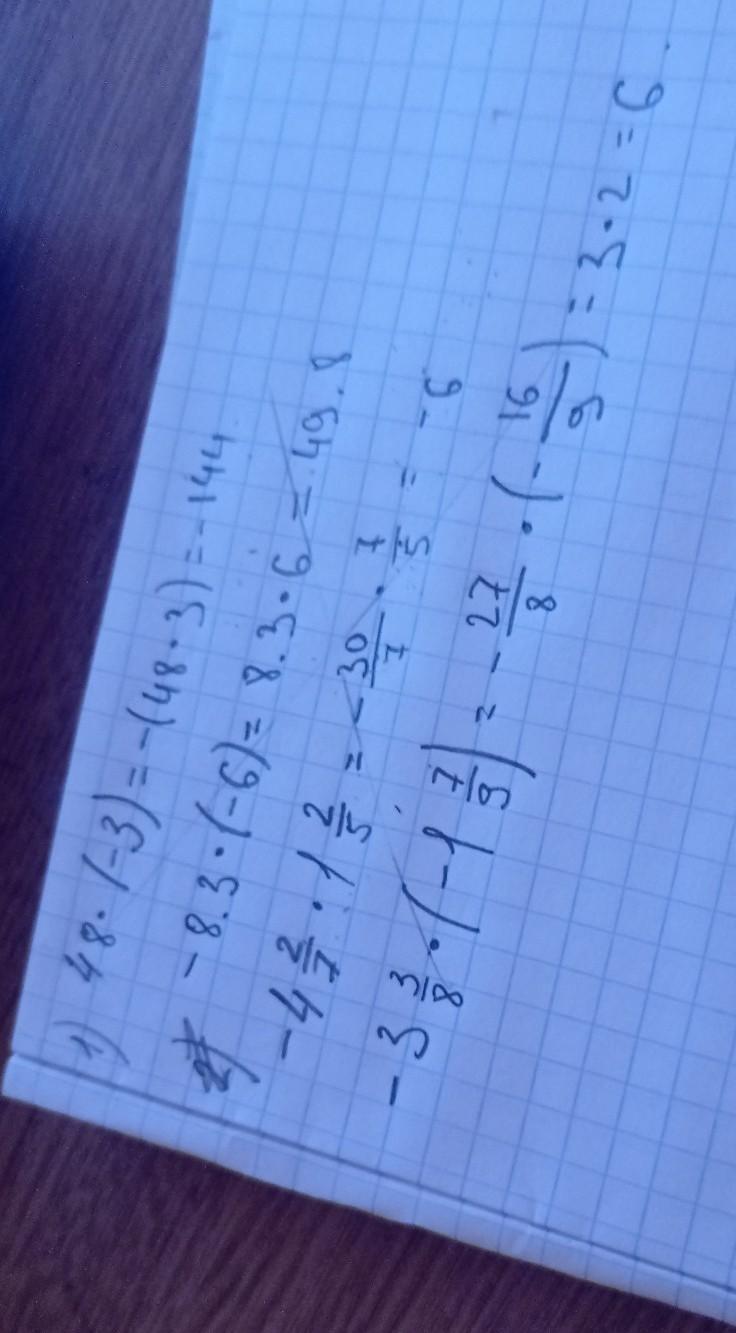 1) 48·(-3)=-(48·3)=-144
-8.3·(-6)=8.3·6=49.8
-4 2/7·1 2/5=-30/7·7/5=-6
-3 3/8·(-1 7/9)=-27/8·(-16/9)=3·2=6